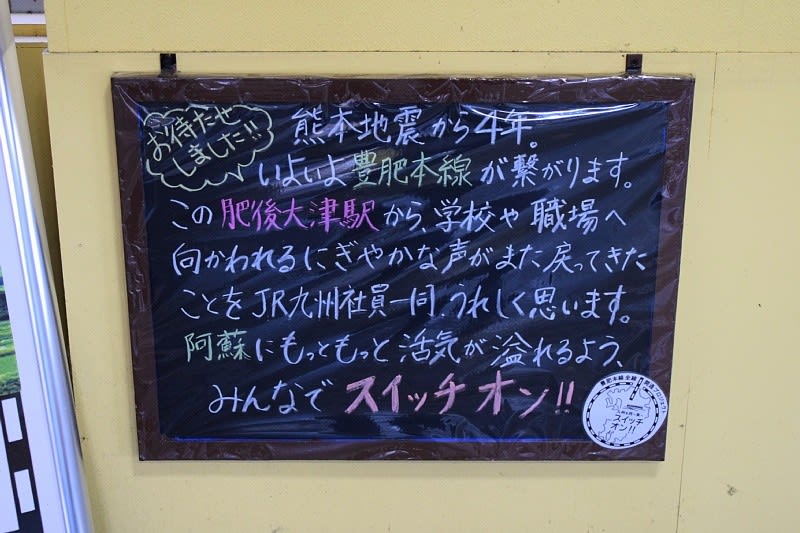 お待たせ
しました!!
熊本地震から4年。
いよいよ豊肥本線が繋がります。
この肥後大津駅から、学校や職場へ
向かわれるにぎやかな声がまた戻ってきた
ことをJR九州社員一同、うれしく思います。
阿蘇にもっともっと活気が溢れるよう、
みんなでスイッチオン!!
豊肥本線全線開通プロジェクト
スイッチ
オン!!